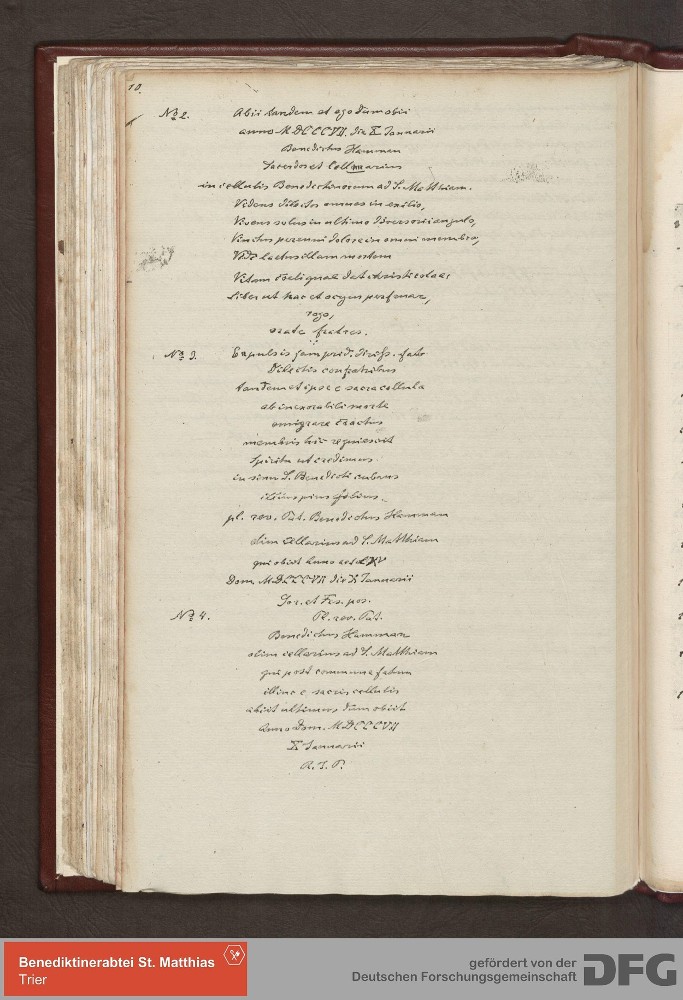 10.
No 2. Abii tandem et ego dum obii
anno MDCCCVII. die X Januarii
Benedictus Hamman
Sacerdos et Cellerarius
in cellulis Benedictinorum ad S. Matthiam.
Videns dilectos omnes in exilio,
Vivens solus in ultimo diversorii angulo,
Vinctus perenni dolore in omni membro,
Vidi laetus illam mortem
Vitam reliquae dat christicolae;
Liber ut hac et ocyus perfruar,
rogo,
orate fratres.
No 3. Expulsis jam prid. direps. fato
Dilectis confratribus
tandem et ipse e sacra cellula
ab inexorabili morte
emigrare coactus
membris hic requiescit
Spiritu ut credimus
in sinu S. Benedicti cubans
filius pius
pl. rev. Pat. Benedictus Hamman
olim cellarius ad S. Matthiam
qui obiit anno aet. LXV
Dom. MDCCCVII die X Januarii
Sor. et Fr. pos.
No 4. Pl. rev. Pat.
Benedictus Hamman
olim cellarius ad S. Matthiam
qui post commune fatum
illinc e sacris cellulis
abiit ultimus, dum obiit
Anno Dom. MDCCCVII
X Januarii
R. I. P.
Benediktinerabtei St. Matthias
Trier
gefördert von der
Deutschen Forschungsgemeinschaft
DFG